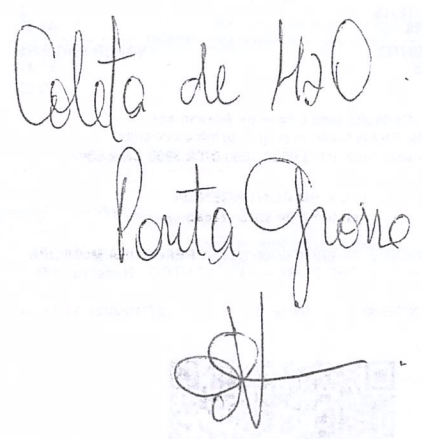 Coleta de H2O.
Ponta Grossa